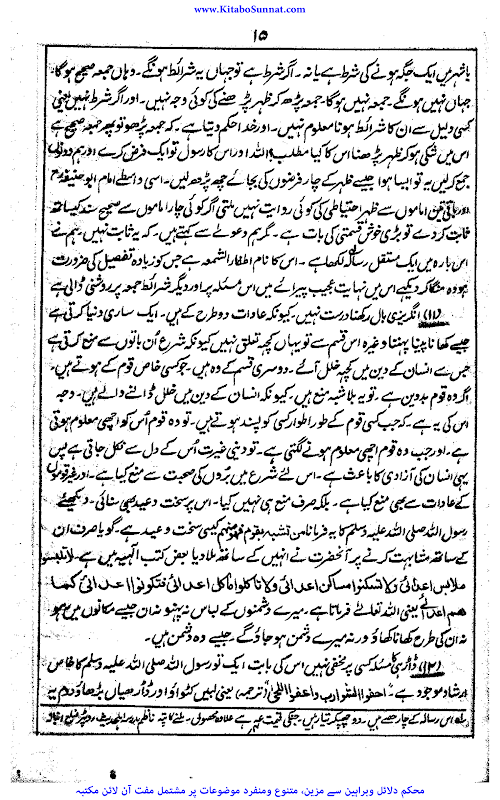 www.KitaboSunnat.com
۱۵
یا شہر میں ایک جگہ ہونے کی شرط ہے یا نہ ۔ اگر شرط ہے تو جہاں یہ شرائط ہونگے ۔ وہاں جمعہ صحیح ہوگا۔
جہاں نہیں ہونگے ۔ جمعہ نہیں ہوگا۔ جمعہ پڑھ کہ ظہر پڑھنے کی کوئی وجہ نہیں ۔ اور اگر شرط نہیں یعنی
کسی دلیل سے ان کا شرائط ہونا معلوم نہیں ۔ اور خدا حکم دیتا ہے ۔ کہ جمعہ پڑھو تو پھر جمعہ صحیح ہے
اس میں شکی ہو کہ ظہر پڑھنا اس کا کیا مطلب؟ اللہ اور اس کا رسول تو ایک فرض کرے اور ہم دونوں
جمع کر لیں یہ تو ایسا ہوا جیسے ظہر کے چار فرضوں کی بجائے چھ پڑھ لیں ۔ اسی واسطے امام ابو حنیفہؒ
اور باقی تین اماموں سے ظہر احتیاطی کی کوئی روایت نہیں ملتی اگر کوئی چار اماموں سے صحیح سند کیساتھ
ثابت کر دے تو بڑی خوش قسمتی کی بات ہے ۔ مگر ہم دعوے سے کہتے ہیں ۔ کہ یہ ثابت نہیں ۔ ہم نے
اس بارہ میں ایک مستقل رسالہ لکھا ہے ۔ اس کا نام اطفاء الشمعہ ہے جس کو زیادہ تفصیل کی ضرورت
ہو وہ منگا کر دیکھے اس میں نہایت عجیب پیرائے میں اس مسئلہ پر اور دیگر شرائط جمعہ پر روشنی ڈالی ہے
(۱۱) انگریزی بال رکھنا درست نہیں ۔ کیونکہ عادات دو طرح کے ہیں ۔ ایک ساری دنیا کرتی ہے
جیسے کھانا پینا پہننا وغیرہ اس قسم سے تو یہاں کچھ تعلق نہیں کیونکہ شرع اُن باتوں سے منع کرتی ہے
جس سے انسان کے دین میں کچھ خلل آئے ۔ دوسری قسم کے وہ ہیں ۔ جو کسی خاص قوم کے ہوتے ہیں ۔
اگر وہ قوم بد دین ہے ۔ تو یہ بلا شبہ منع ہیں ۔ کیونکہ انسان کے دین میں خلل ڈالنے والے ہیں ۔ وجہ
اس کی یہ ہے ۔ کہ جب کسی قوم کے طور اطوار کسی کو پسند ہوتے ہیں ۔ تو وہ قوم اُس کو اچھی معلوم ہوتی
ہے ۔ اور جب وہ قوم اچھی معلوم ہونے لگتی ہے ۔ تو دینی غیرت اُس کے دل سے نکل جاتی ہے پس
یہی انسان کی آزادی کا باعث ہے ۔ اس لئے شرع میں بُروں کی صحبت سے منع کیا ہے ۔ اور غیر قوموں
کے عادات سے بھی منع کیا ہے ۔ بلکہ صرف منع ہی نہیں کیا ۔ اس پر سخت وعید بھی سنائی ۔ دیکھئے
رسول اللہ صلی اللہ علیہ وسلم کا یہ فرمانا من تشبہ بقوم فہو منہم کیسی سخت وعید ہے ۔ گویا صرف ان
کے ساتھ مشابہت کرنے پر آنحضرت نے انہیں کے ساتھ ملا دیا بعض کتب الٰہیہ میں ہے ۔ لاتلبسو
ملابس اعدائی ولا تسکنوا مساکن اعدائی ولا تاکلوا ماکل اعدائی فتکونوا اعدائی کما
ھم اعدائی یعنی اللہ تعالٰے فرماتا ہے ۔ میرے دشمنوں کے لباس نہ پہنو نہ ان جیسے مکانوں میں رہو
نہ ان کی طرح کھانا کھاؤ ورنہ میرے دشمن ہو جاؤ گے ۔ جیسے وہ دشمن ہیں ۔
(۱۲) ڈاڑھی کا مسئلہ کسی پر مخفی نہیں اس کی بابت ایک تو رسول اللہ صلی اللہ علیہ وسلم کا خاص
ارشاد موجود ہے ۔ احفوا الشوارب واعفوا اللحی (ترجمہ) یعنی لبیں کٹواؤ اور ڈاڑھیاں بڑھاؤ دوم یہ
اس رسالہ کے چار حصے ہیں ۔ دو چھپکر تیار ہیں ۔ جنکی قیمت ہے علاوہ محصول ۔ ملنے کا پتہ
محکم دلائل وبراہین سے مزین، متنوع ومنفرد موضوعات پر مشتمل مفت آن لائن مکتبہ